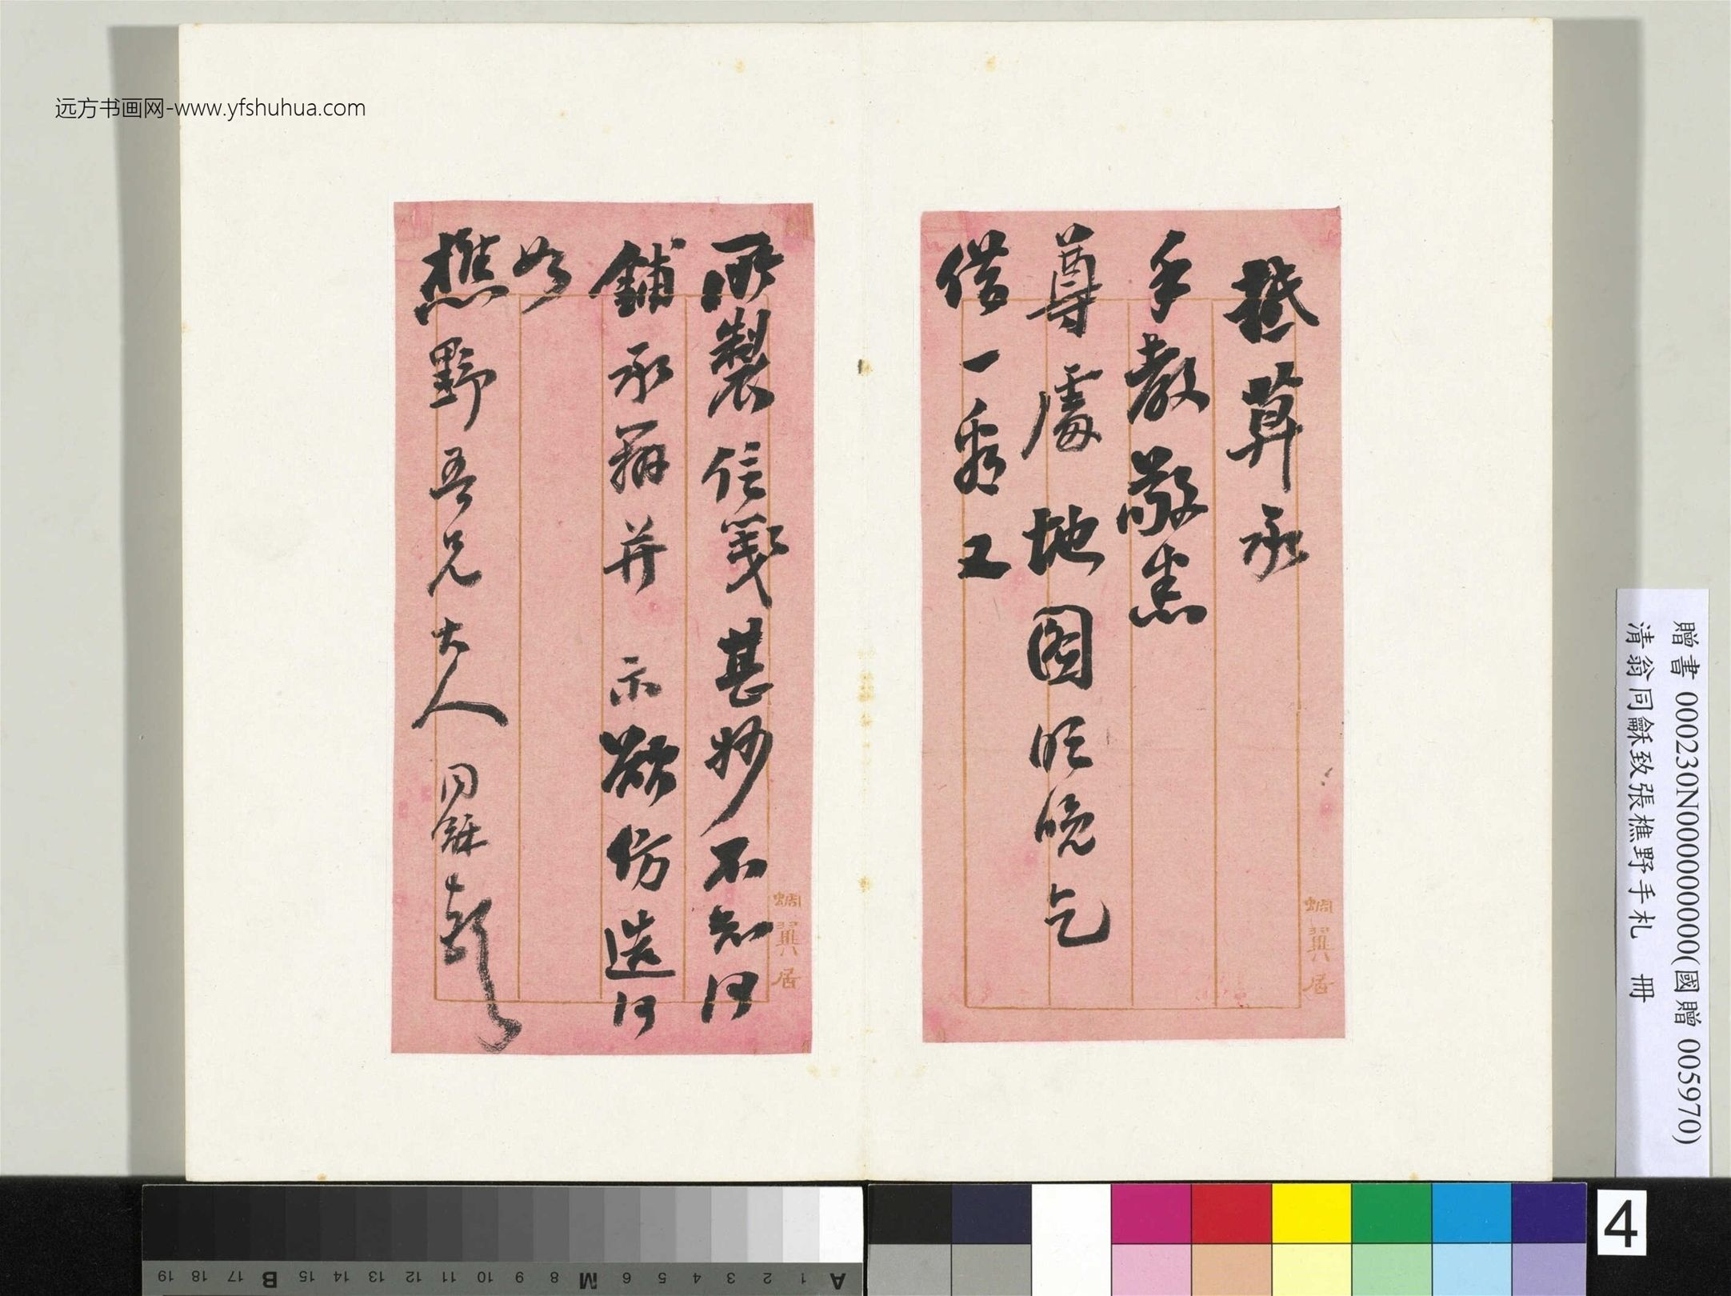 远方书画网-www.yfshuhua.com
承
手教敬悉
尊處地圖明晚乞
借一看又
蜩翼居
所製信箋甚妙不知何
鋪承辦并示欲仿造何
如
樵野吾兄大人 同龢頓首
蜩翼居
贈書 000230N000000000(國贈 005970)
清翁同龢致張樵野手札 冊
19 18 17 B 15 14 13 12 11 10 9 8 M 6 5 4 3 2 1 A
4